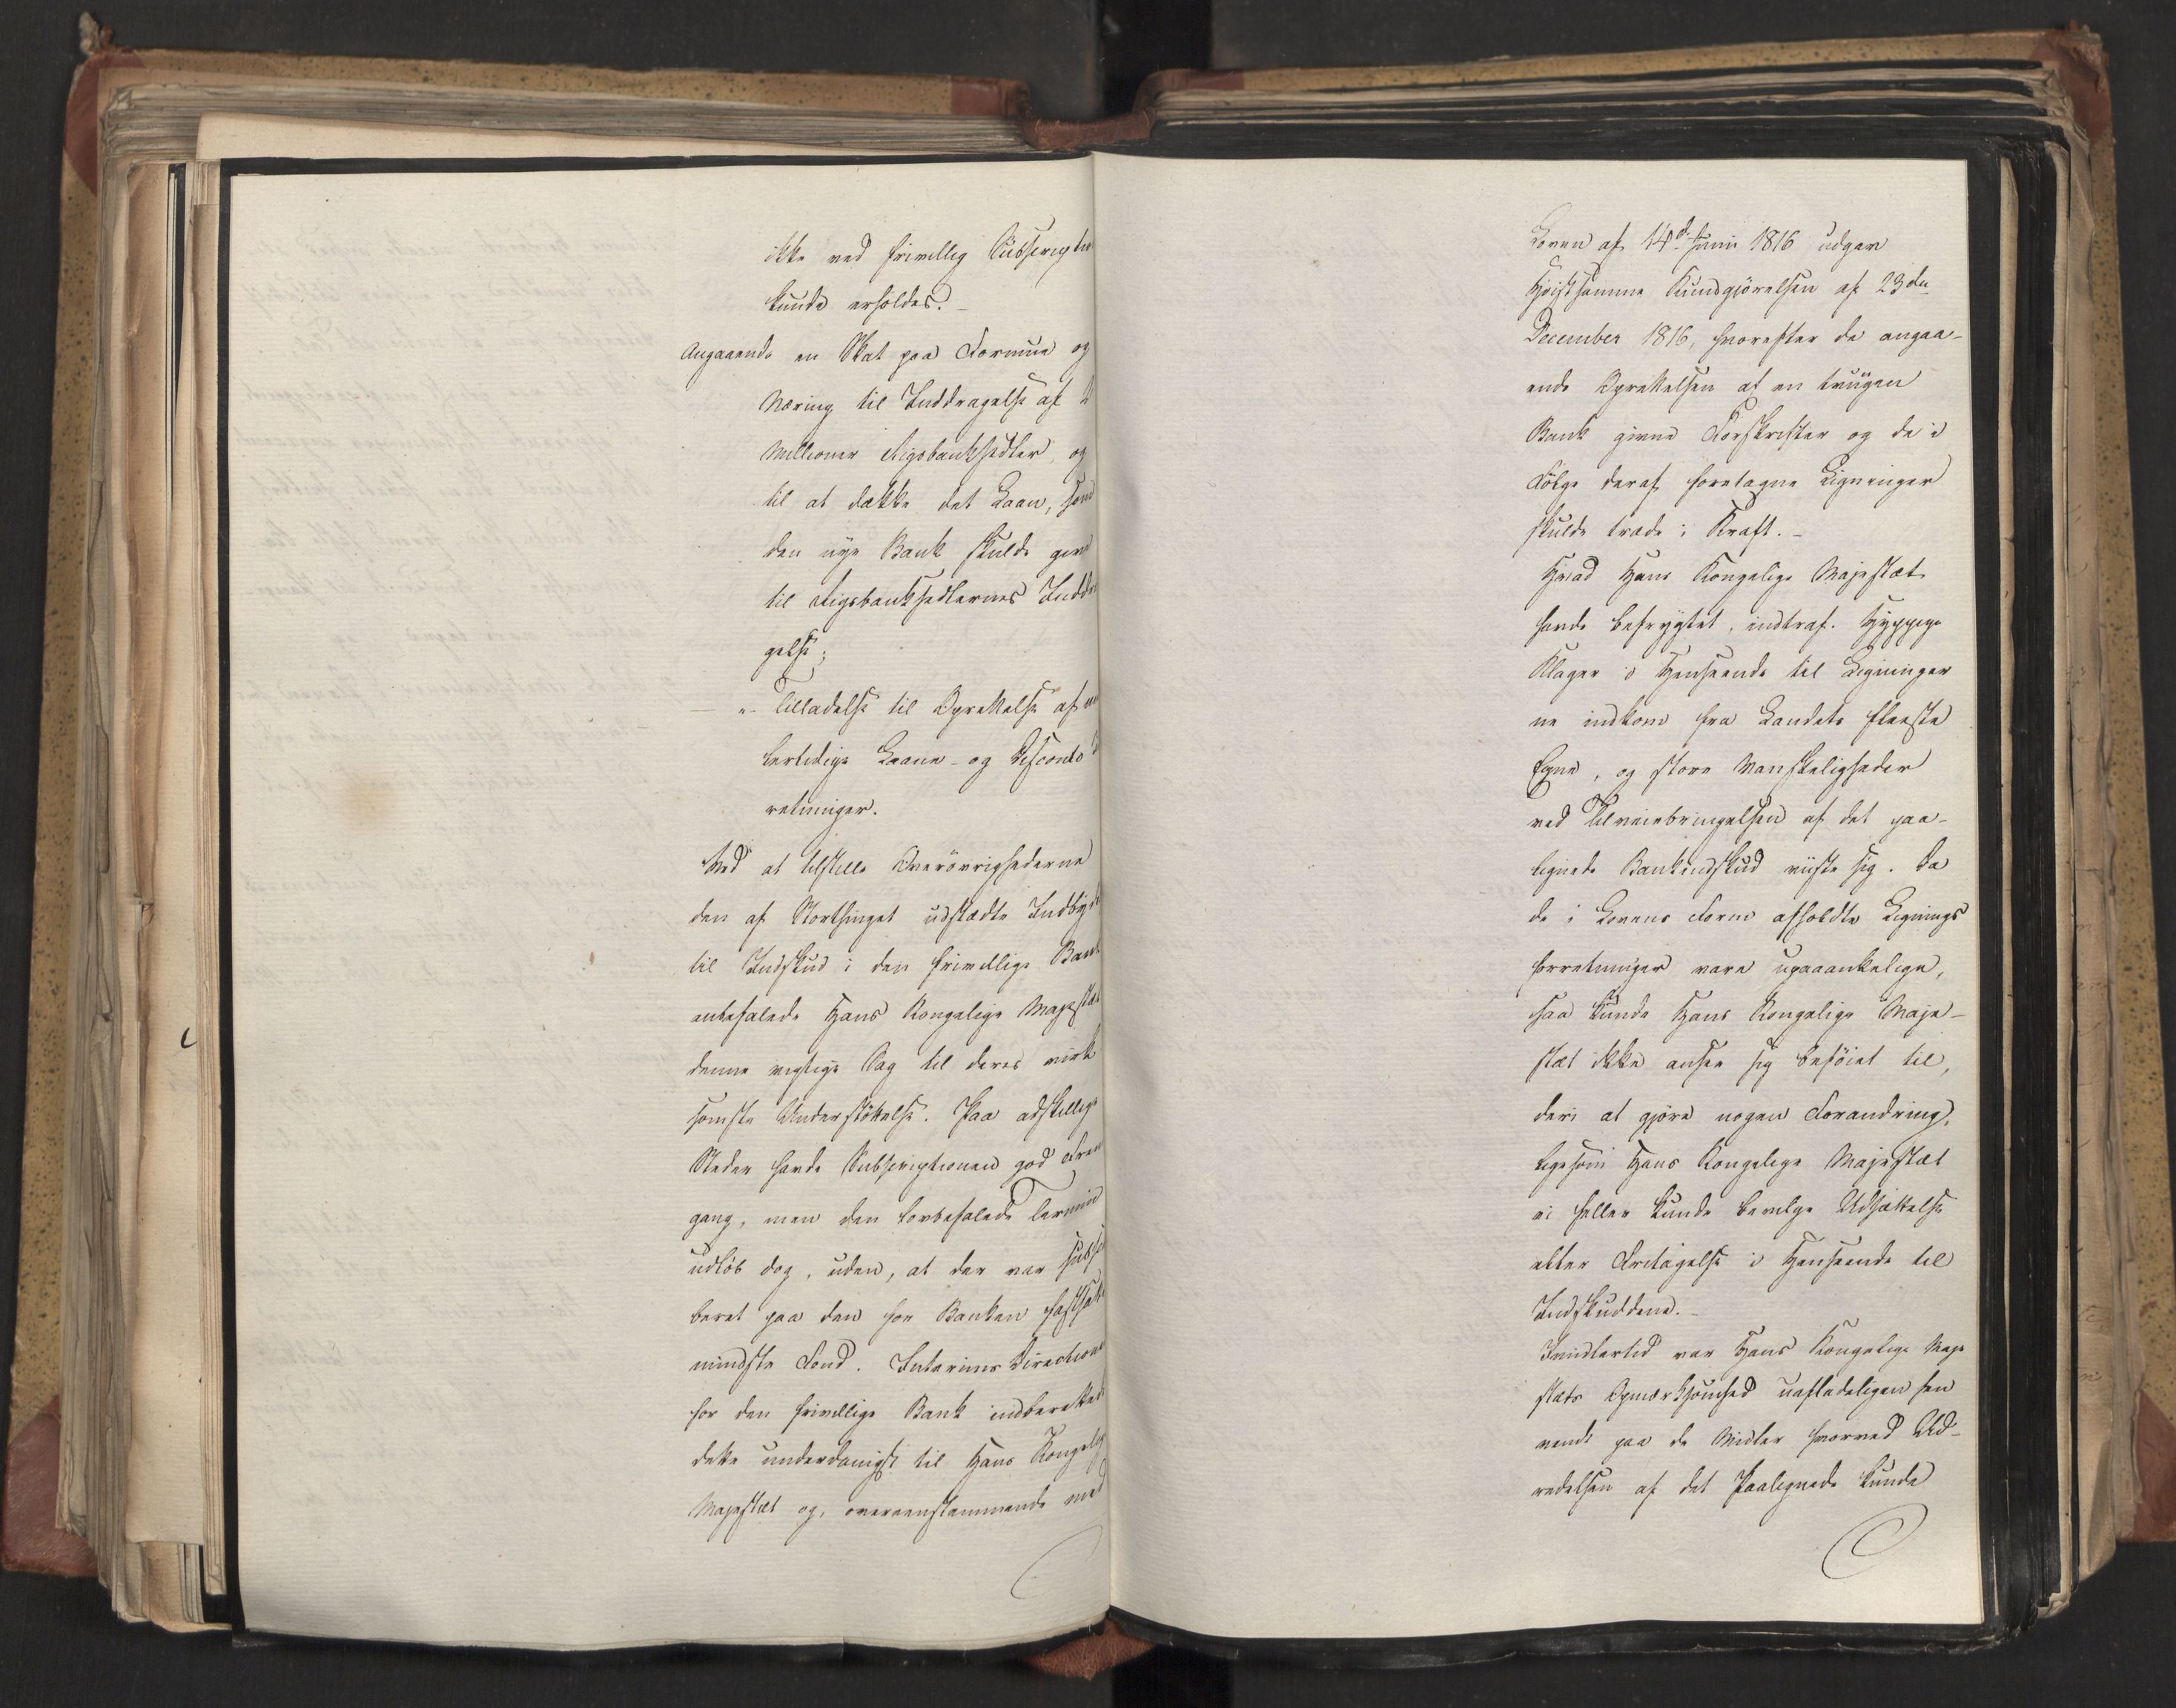 ikke ved frivillig Subscription
kunde erholdes. -
Angaaende en Skat paa Formue og
Næring til Inddragelse af 2
Millioner Rigsbanksedler, og
til at dække det Laan, som
den nye Bank skulde give
til Rigsbanksedlernes Inddra
gelse;
"- Tilladelse til Oprettelse af
kortidige Laane- og Disconto
retninger.
Ved at tilstille Overøvrighederne
den af Storthinget udstædte Indbydelse
til Indskud i den frivillige Bank
anbefalede Hans Kongelige Majestæt
denne vigtige Sag til deres virk
somste Understøttelse. Paa adskillige
Steder havde Subscriptionen god Frem
gang, men den lovbefalede Termin
udløb dog, uden, at der var subscri
beret paa den for Banken fastsatte
mindste Fond. Interims Directionen
for den frivillige Bank indberettede
dette underdanigst til Hans Kongelige
Majestæt og, overeenstemmende med
Loven af 14d Juni 1816 udgav
Høistsamme Kundgjørelsen af 23de
December 1816, hvorefter de angaa-
ende Oprettelsen af en tvungen
Bank givne Forskrifter og de i
Følge deraf foretagne Ligninger
skulde træde i Kraft. -
Hvad Hans Kongelige Majestæt
havde befrygtet, indtraf. Hyppige
Klager i Henseende til Ligninger
ne indkom fra Landets fleeste
Egne, og store Vanskeligheder
ved Tilveiebringelsen af det paa-
lignede Bankindskud viiste sig. Da
de i Lovens Form afholdte Lignings
forretninger vare upaaankelige,
saa kunde Hans Kongelige Maje-
stæt ikke ansee sig beføiet til,
deri at gjøre nogen Forandring,
ligesom Hans Kongelige Majestæt
ei heller kunde bevilge Udsættelse
eller Fritagelse i Henseende til
Indskuddene. -
Imidlertid var Hans Kongelige Maje
stæts Opmærksomhed uafladeligen hen
vendt paa de Midler hvorved Ud-
redelsen af det Paalignede kunde